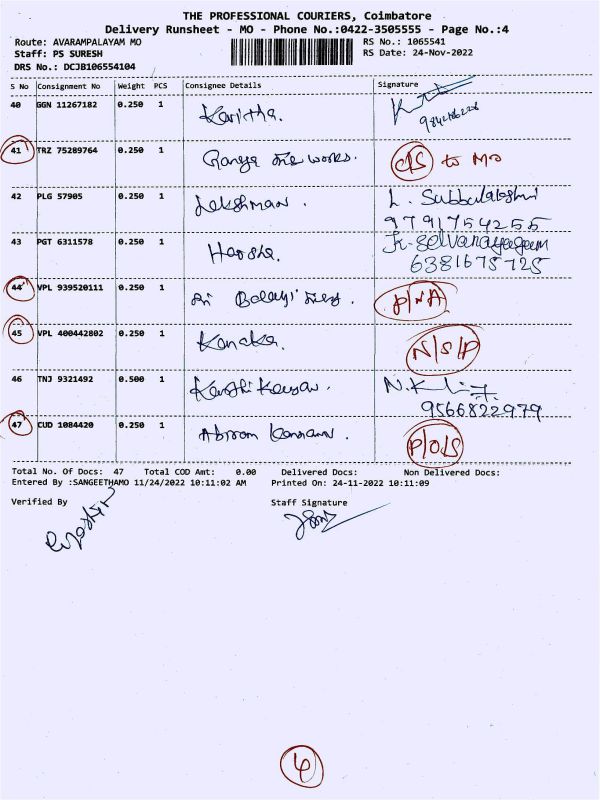 THE PROFESSIONAL COURIERS, Coimbatore
Delivery Runsheet - MO - Phone No.:0422-3505555 - Page No.:4
Route: AVARAMPALAYAM MO RS No.: 1065541
Staff: PS SURESH RS Date: 24-Nov-2022
DRS No.: DCJB106554104
S No Consignment No Weight PCS Consignee Details Signature
40 GGN 11267182 0.250 1 Kavitha.
41 TRZ 75289764 0.250 1 Ranga works. C/S to MO
42 PLG 57905 0.250 1 Lakshman. L. Subbulakshmi
9791754255
43 PGT 6311578 0.250 1 Harsha. K. Selvanayagam
6381675725
44 VPL 939520111 0.250 1 Sri Balaji P/N/A
45 VPL 400442802 0.250 1 Kanaka. N/S/P
46 TNJ 9321492 0.500 1 Karthikeyan.
9566822979
47 CUD 1084420 0.250 1 Abiram Kannann. P/O/S
Total No. Of Docs: 47 Total COD Amt: 0.00 Delivered Docs: Non Delivered Docs:
Entered By :SANGEETHAMO 11/24/2022 10:11:02 AM Printed On: 24-11-2022 10:11:09
Verified By Staff Signature